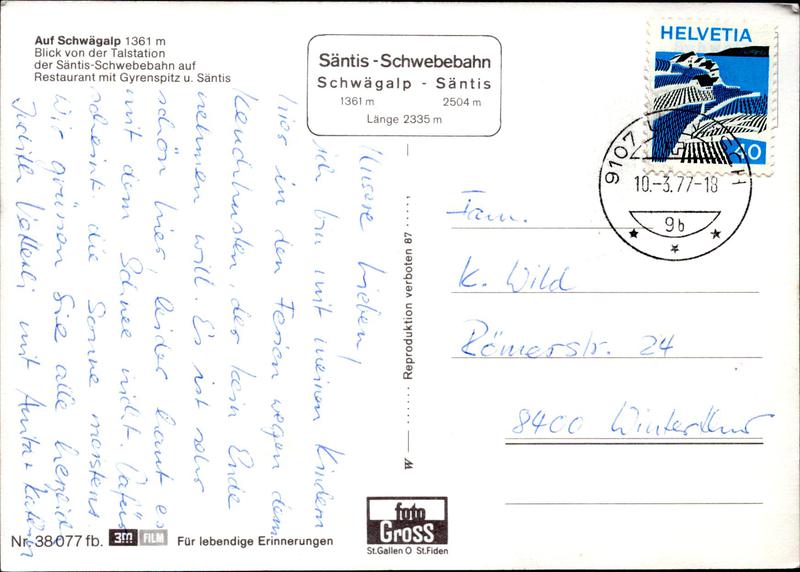 Auf Schwägalp 1361 m
Blick von der Talstation
der Säntis-Schwebebahn auf
Restaurant mit Gyrenspitz u. Säntis
Säntis-Schwebebahn
Schwägalp - Säntis
1361 m 2504 m
Länge 2335 m
HELVETIA
40
9107
10.-3.77-18
9b
Lieben!
ich bin mit meinen Kindern
hier in den Ferien wegen dem
Keuchhusten, der kein Ende
nehmen will. Es ist sehr
schön hier, leider haut es
mit dem Schnee nicht. Dafür
scheint die Sonne meistens.
Wir grüssen Sie alle herzlich
Judith mit Anita + Katrin
Fam.
K. Wild
Römerstr. 24
8400 Winterthur
Reproduktion verboten 87
foto
Gross
St.Gallen O St.Fiden
Nr. 38077 fb. 3M FILM Für lebendige Erinnerungen